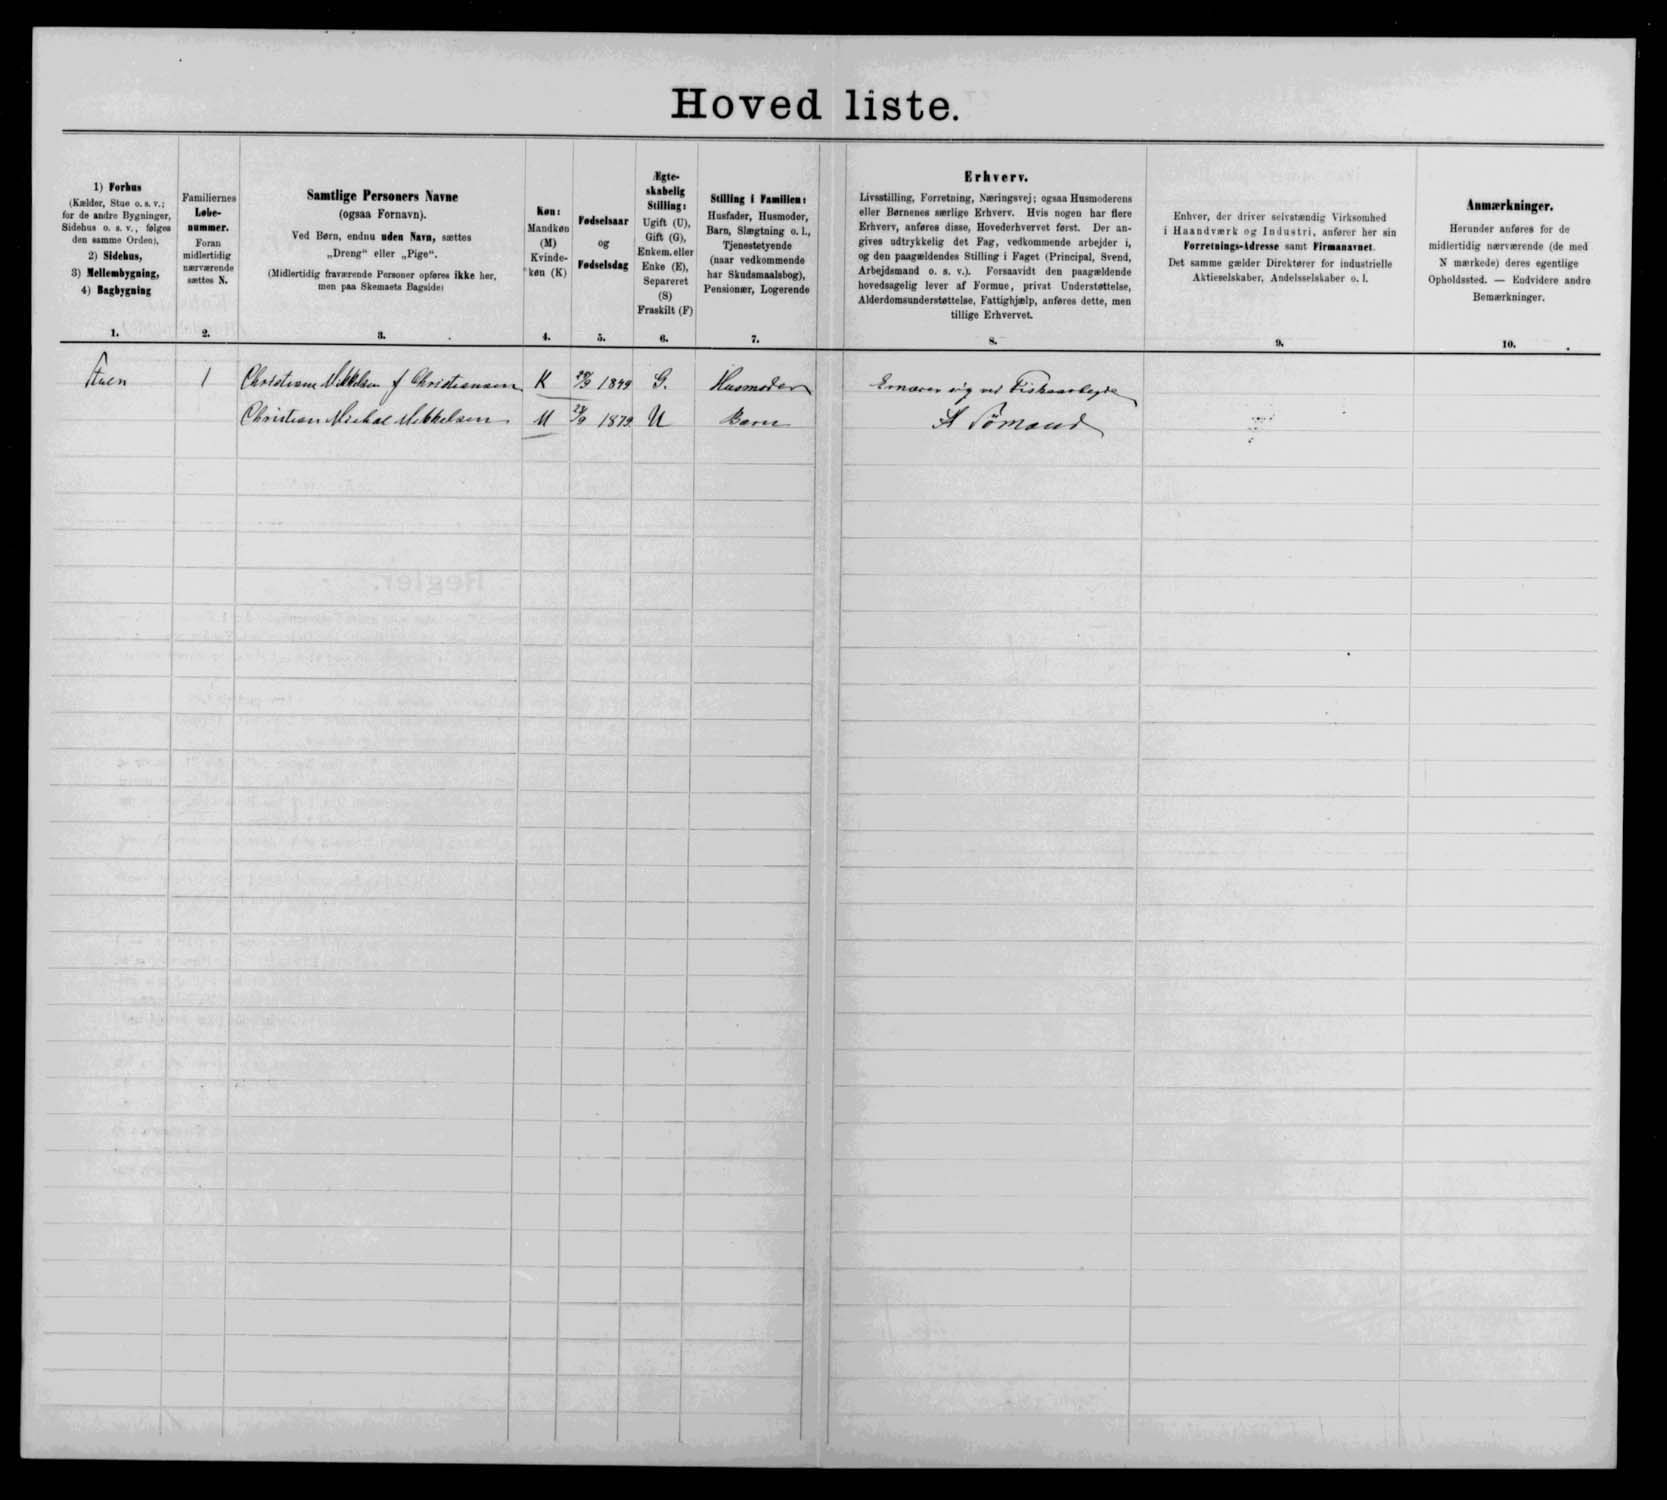 Hoved liste.
1) Forhus
(Kælder, Stue o. s. v.;
for de andre Bygninger,
Sidehus o. s. v., følges
den samme Orden),
2) Sidehus,
3) Mellembygning,
4) Bagbygning
1.
Familiernes
Løbe-
nummer.
Foran
midlertidig
nærværende
sættes N.
2.
Samtlige Personers Navne
(ogsaa Fornavn).
Ved Børn, endnu uden Navn, sættes
„Dreng“ eller „Pige“.
(Midlertidig fraværende Personer opføres ikke her,
men paa Skemaets Bagside)
3.
Køn:
Mandkøn
(M)
Kvinde-
køn (K)
4.
Fødselsaar
og
Fødselsdag
5.
Ægte-
skabelig
Stilling:
Ugift (U),
Gift (G),
Enkem. eller
Enke (E),
Separeret
(S)
Fraskilt (F)
6.
Stilling i Familien:
Husfader, Husmoder,
Barn, Slægtning o. l.,
Tjenestetyende
(naar vedkommende
har Skudsmaalsbog),
Pensionær, Logerende
7.
Erhverv.
Livsstilling, Forretning, Næringsvej; ogsaa Husmoderens
eller Børnenes særlige Erhverv. Hvis nogen har flere
Erhverv, anføres disse, Hovederhvervet først. Der an-
gives udtrykkelig det Fag, vedkommende arbejder i,
og den paagældendes Stilling i Faget (Principal, Svend,
Arbejdsmand o. s. v.). Forsaavidt den paagældende
hovedsagelig lever af Formue, privat Understøttelse,
Alderdomsunderstøttelse, Fattighjælp, anføres dette, men
tillige Erhvervet.
8.
Enhver, der driver selvstændig Virksomhed
i Haandværk og Industri, anfører her sin
Forretnings-Adresse samt Firmanavnet.
Det samme gælder Direktører for industrielle
Aktieselskaber, Andelsselskaber o. l.
9.
Anmærkninger.
Herunder anføres for de
midlertidig nærværende (de med
N mærkede) deres egentlige
Opholdssted. — Endvidere andre
Bemærkninger.
10.
Stuen 1 Christiane Mikkelsen f Christiansen K 1849 G. Husmoder Ernærer sig ved Fiskearbejde
Christian Michal Mikkelsen M 1879 U Barn Sømand